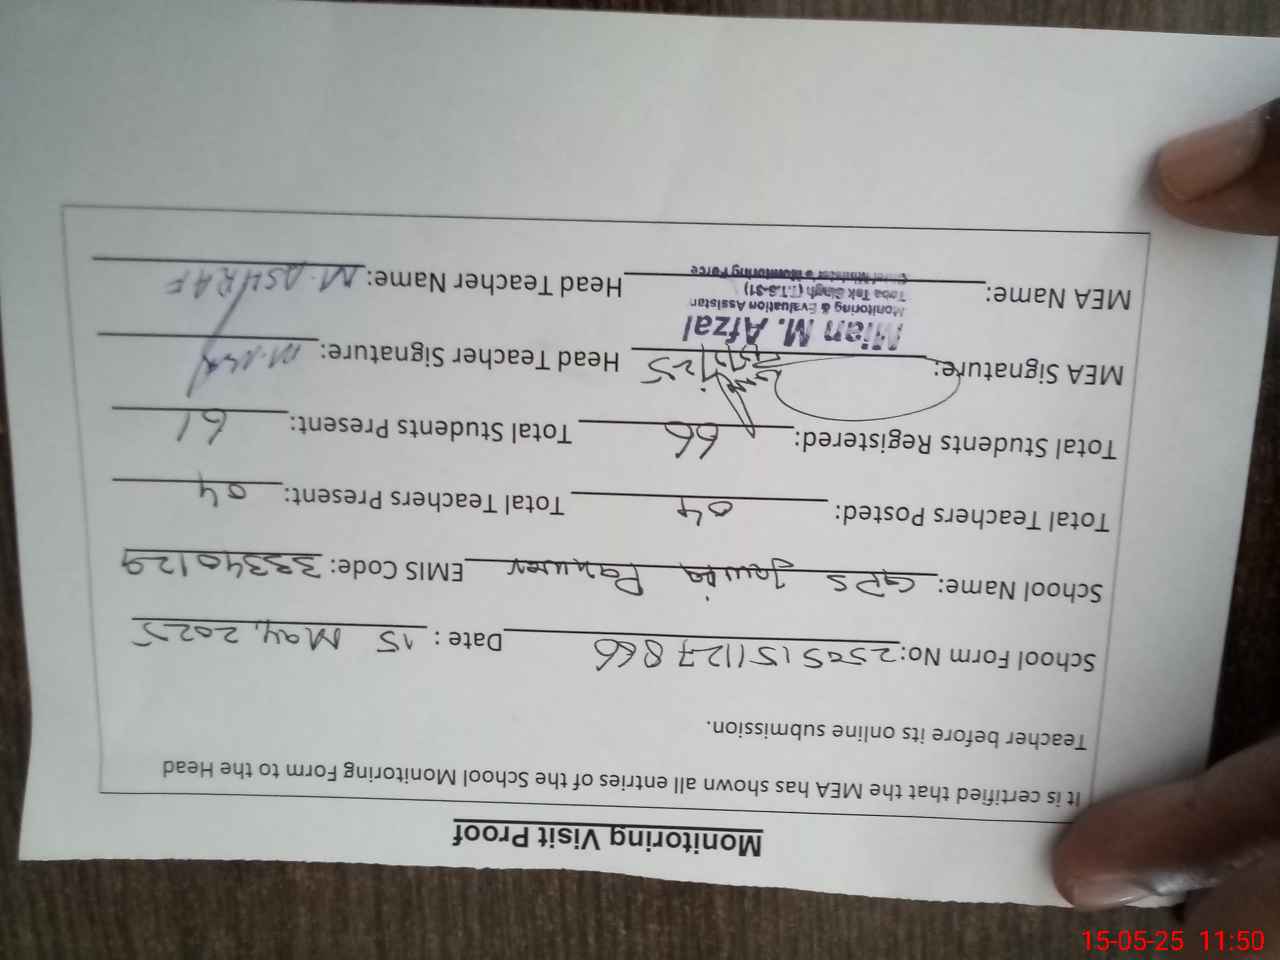 Monitoring Visit Proof
It is certified that the MEA has shown all entries of the School Monitoring Form to the Head
Teacher before its online submission.
School Form No: 2505151127866 Date: 15 May, 2025
School Name: GPS EMIS Code: 33340129
Total Teachers Posted: 04 Total Teachers Present: 04
Total Students Registered: 66 Total Students Present: 61
MEA Signature: Head Teacher Signature:
Mian M. Afzal
Monitoring & Evaluation Assistan
Toba Tek Singh (T.T.S-31)
Chief Minister's Monitoring Force
MEA Name: Head Teacher Name: M. ASHRAF
15-05-25 11:50